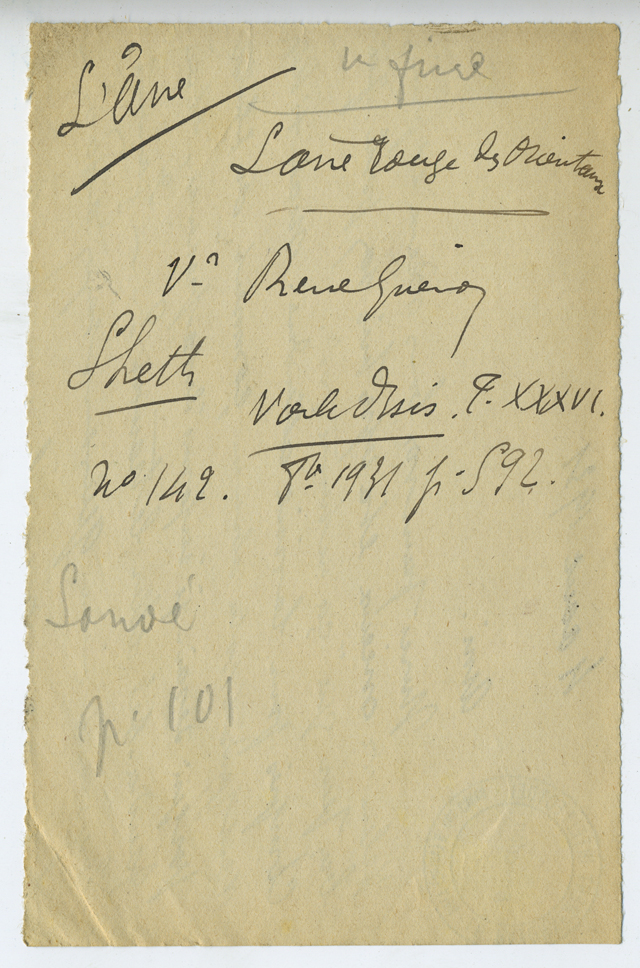 L'âne
L'âne rouge des Orientaux
Vr René Guénon
Sheth
Voile d'Isis. T. XXXVI.
no 142. 1931 p. 592.
p. 101